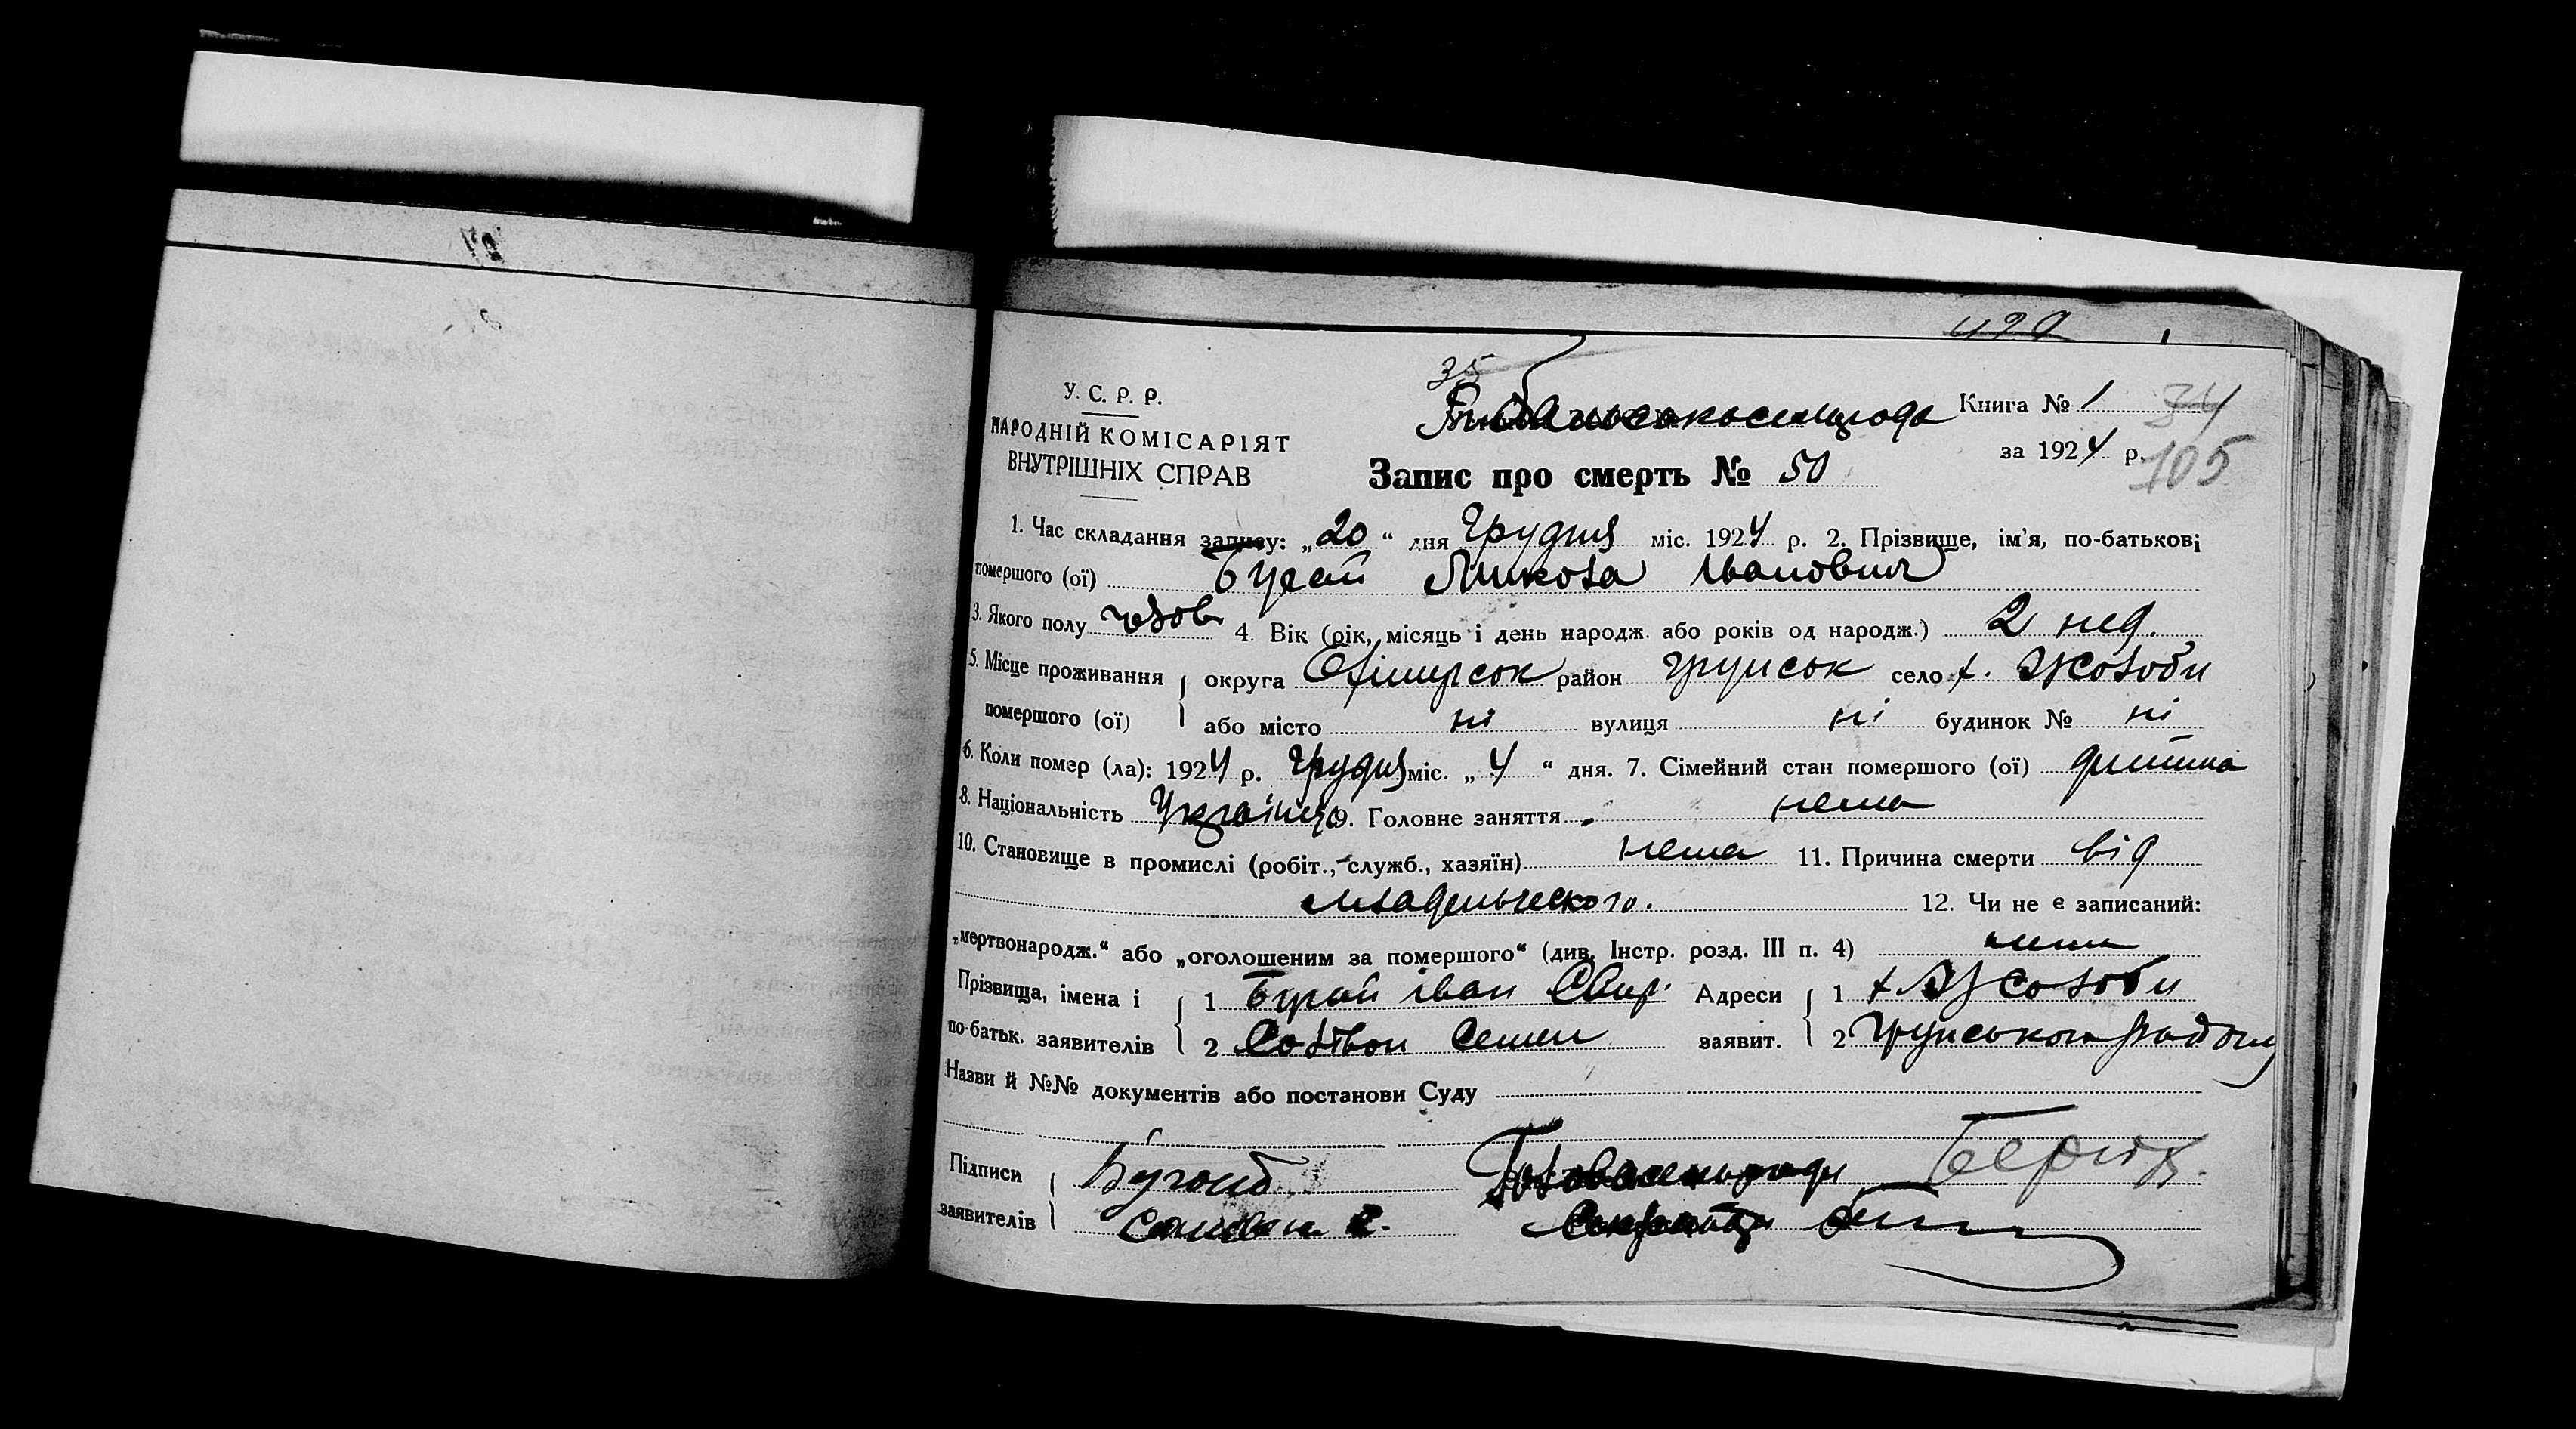 429
35
У. С. Р. Р.
НАРОДНІЙ КОМІСАРІЯТ
ВНУТРІШНІХ СПРАВ
Книга № 1 34
за 1924 р. 105
Запис про смерть № 50
1. Час складання запису: „20“ дня Грудня міс. 1924 р. 2. Прізвище, ім'я, по-батькові
помершого (ої) Бугай Микола Іванович
3. Якого полу чолов 4. Вік (рік, місяць і день народж. або років од народж.) 2 нед.
5. Місце проживання округа район Грунськ село х. Жолоби
помершого (ої) або місто ні вулиця ні будинок № ні
6. Коли помер (ла): 1924 р. Грудня міс. „4“ дня. 7. Сімейний стан помершого (ої) дитина
8. Національність Українец 9. Головне заняття нема
10. Становище в промислі (робіт., служб., хазяїн) нема 11. Причина смерти від
младенческого. 12. Чи не є записаний:
„мертвонародж.“ або „оголошеним за помершого“ (див. Інстр. розд. III п. 4) нема
Прізвища, імена і 1 Бугай Іван Адреси 1 х Жолоби
по-батьк. заявителів 2 Семен заявит. 2 Грунського району
Назви й №№ документів або постанови Суду
Підписи Голова сельради
заявителів Секретар